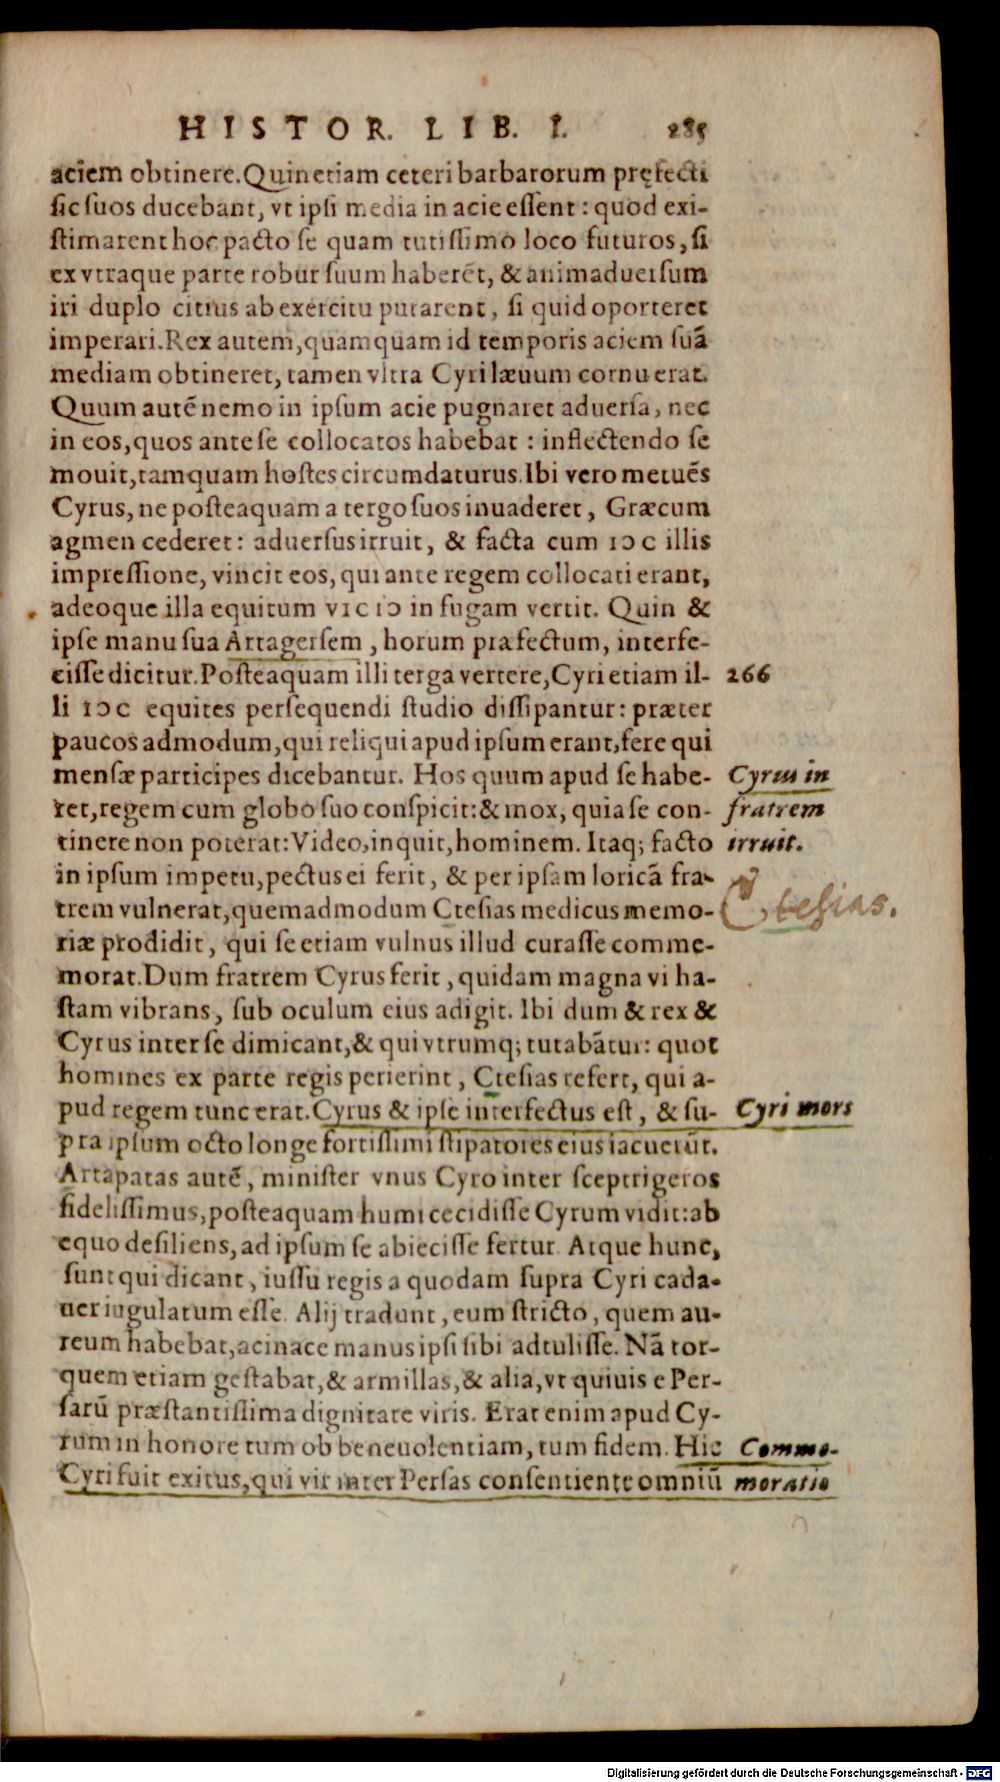 HISTOR. LIB. I. 285
aciem obtinere. Quin etiam ceteri barbarorum pręfecti
sic suos ducebant, vt ipsi media in acie essent: quod exi-
stimarent hoc pacto se quam tutissimo loco futuros, si
ex vtraque parte robur suum haberēt, & animaduersum
iri duplo citius ab exercitu putarent, si quid oporteret
imperari. Rex autem, quamquam id temporis aciem suā
mediam obtineret, tamen vltra Cyri læuum cornu erat.
Quum autē nemo in ipsum acie pugnaret aduersa, nec
in eos, quos ante se collocatos habebat: inflectendo se
mouit, tamquam hostes circumdaturus. Ibi vero metuēs
Cyrus, ne posteaquam a tergo suos inuaderet, Græcum
agmen cederet: aduersus irruit, & facta cum IↃC illis
impressione, vincit eos, qui ante regem collocati erant,
adeoque illa equitum VICIↃ in fugam vertit. Quin &
ipse manu sua Artagersem, horum præfectum, interfe-
cisse dicitur. Posteaquam illi terga vertere, Cyri etiam il- 266
li IↃC equites persequendi studio dissipantur: præter
paucos admodum, qui reliqui apud ipsum erant, fere qui
mensæ participes dicebantur. Hos quum apud se habe- Cyrus in
ret, regem cum globo suo conspicit: & mox, quia se con- fratrem
tinere non poterat: Video, inquit, hominem. Itaq; facto irruit.
in ipsum impetu, pectus ei ferit, & per ipsam loricā fra-
trem vulnerat, quemadmodum Ctesias medicus memo- Ctesias.
riæ prodidit, qui se etiam vulnus illud curasse comme-
morat. Dum fratrem Cyrus ferit, quidam magna vi ha-
stam vibrans, sub oculum eius adigit. Ibi dum & rex &
Cyrus inter se dimicant, & qui vtrumq; tutabātur: quot
homines ex parte regis perierint, Ctesias refert, qui a-
pud regem tunc erat. Cyrus & ipse interfectus est, & su- Cyri mors
pra ipsum octo longe fortissimi stipatores eius iacuerūt.
Artapatas autē, minister vnus Cyro inter sceptrigeros
fidelissimus, posteaquam humi cecidisse Cyrum vidit: ab
equo desiliens, ad ipsum se abiecisse fertur. Atque hunc,
sunt qui dicant, iussu regis a quodam supra Cyri cada-
uer iugulatum esse. Alij tradunt, eum stricto, quem au-
reum habebat, acinace manus ipsi sibi adtulisse. Nā tor-
quem etiam gestabat, & armillas, & alia, vt quiuis e Per-
sarū præstantissima dignitate viris. Erat enim apud Cy-
rum in honore tum ob beneuolentiam, tum fidem. Hic Comme-
Cyri fuit exitus, qui vir inter Persas consentiente omniū moratio
Digitalisierung gefördert durch die Deutsche Forschungsgemeinschaft - DFG